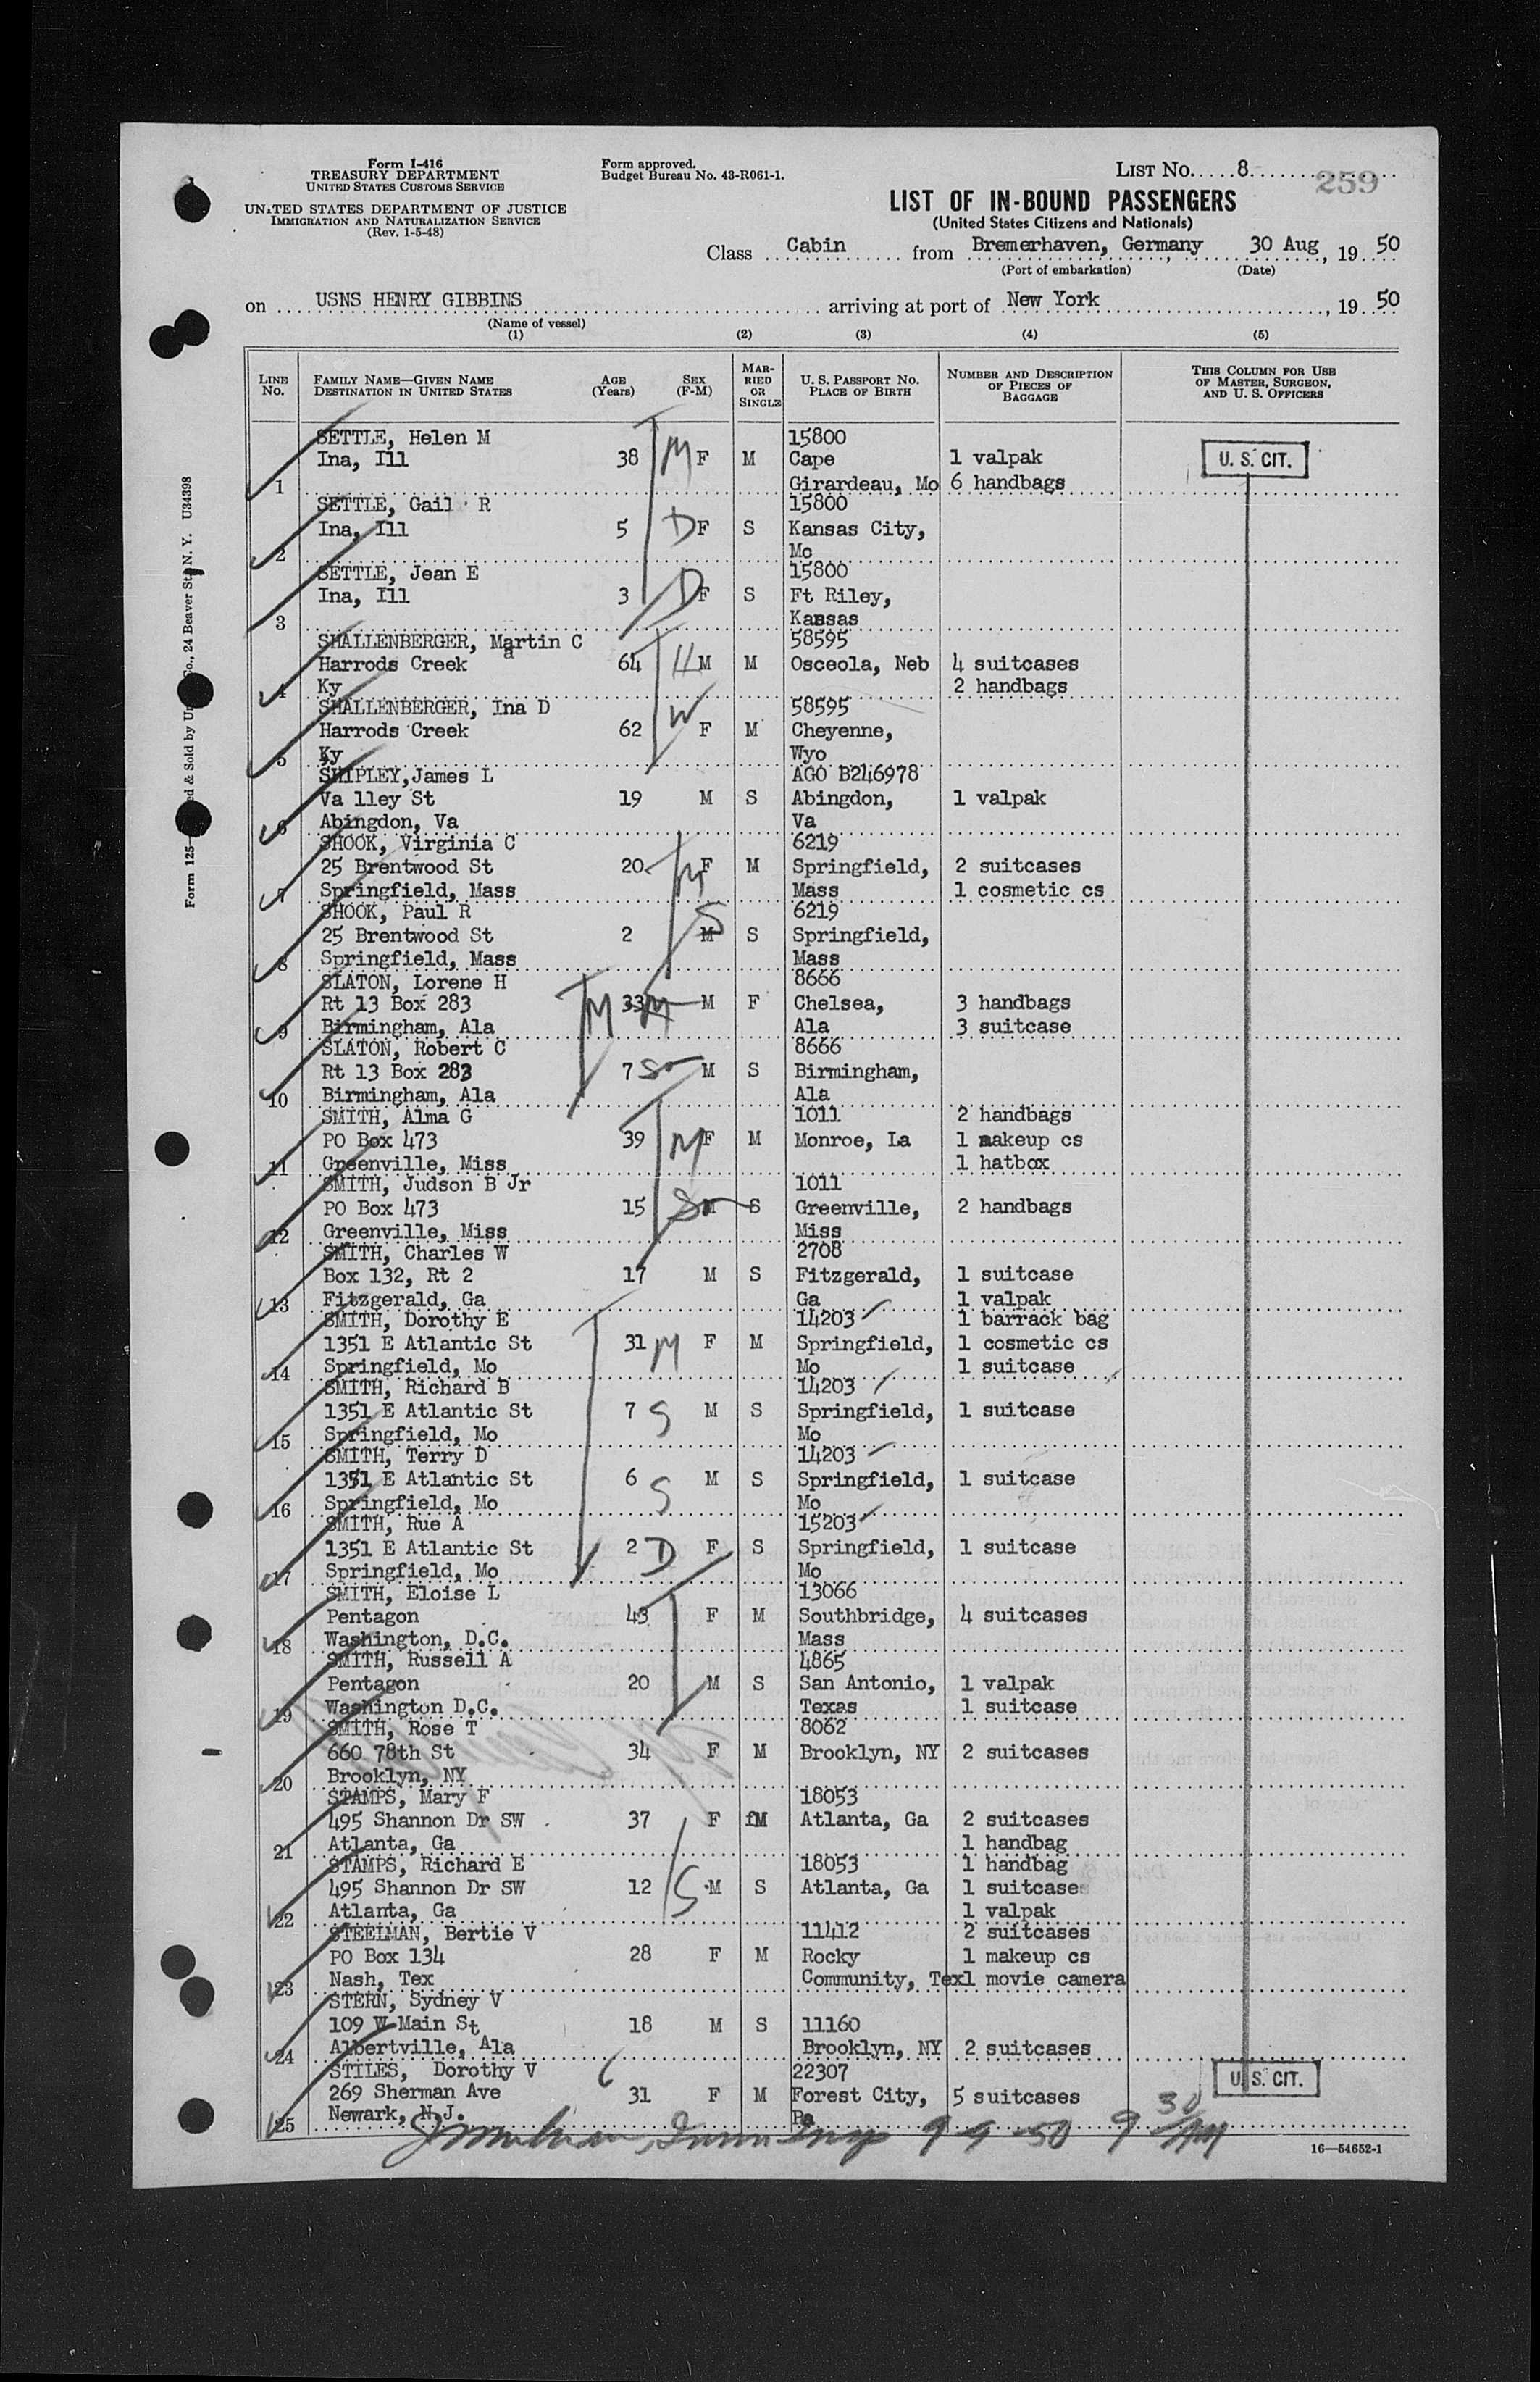 Form I-416
TREASURY DEPARTMENT
UNITED STATES CUSTOMS SERVICE
UNITED STATES DEPARTMENT OF JUSTICE
IMMIGRATION AND NATURALIZATION SERVICE
(Rev. 1-5-48)
Form approved.
Budget Bureau No. 43-R061-1.
LIST No. 8
259
LIST OF IN-BOUND PASSENGERS
(United States Citizens and Nationals)
Class Cabin from Bremerhaven, Germany, 30 Aug, 19 50
(Port of embarkation) (Date)
on USNS HENRY GIBBINS arriving at port of New York, 19 50
(Name of vessel)
(1) (2) (3) (4) (5)
LINE No. FAMILY NAME—GIVEN NAME DESTINATION IN UNITED STATES AGE (Years) SEX (F-M) MARRIED OR SINGLE U. S. PASSPORT No. PLACE OF BIRTH NUMBER AND DESCRIPTION OF PIECES OF BAGGAGE THIS COLUMN FOR USE OF MASTER, SURGEON, AND U. S. OFFICERS
SETTLE, Helen M 15800
Ina, Ill 38 M F M Cape 1 valpak U. S. CIT.
1 Girardeau, Mo 6 handbags
SETTLE, Gail R 15800
Ina, Ill 5 D F S Kansas City,
2 Mo
SETTLE, Jean E 15800
Ina, Ill 3 D F S Ft Riley,
3 Kansas
SHALLENBERGER, Martin C 58595
Harrods Creek 64 H M M Osceola, Neb 4 suitcases
4 Ky 2 handbags
SHALLENBERGER, Ina D 58595
Harrods Creek 62 W F M Cheyenne,
5 Ky Wyo
SHIPLEY,James L AGO B246978
Va lley St 19 M S Abingdon, 1 valpak
6 Abingdon, Va Va
SHOOK, Virginia C 6219
25 Brentwood St 20 M F M Springfield, 2 suitcases
7 Springfield, Mass Mass 1 cosmetic cs
SHOOK, Paul R 6219
25 Brentwood St 2 S M S Springfield,
8 Springfield, Mass Mass
SLATON, Lorene H 8666
Rt 13 Box 283 M 33 M M F Chelsea, 3 handbags
9 Birmingham, Ala Ala 3 suitcase
SLATON, Robert C 8666
Rt 13 Box 283 7 So M S Birmingham,
10 Birmingham, Ala Ala
SMITH, Alma G 1011 2 handbags
PO Box 473 39 M F M Monroe, La 1 makeup cs
11 Greenville, Miss 1 hatbox
SMITH, Judson B Jr 1011
PO Box 473 15 So M S Greenville, 2 handbags
12 Greenville, Miss Miss
SMITH, Charles W 2708
Box 132, Rt 2 17 M S Fitzgerald, 1 suitcase
13 Fitzgerald, Ga Ga 1 valpak
SMITH, Dorothy E 14203 1 barrack bag
1351 E Atlantic St 31 M F M Springfield, 1 cosmetic cs
14 Springfield, Mo Mo 1 suitcase
SMITH, Richard B 14203
1351 E Atlantic St 7 S M S Springfield, 1 suitcase
15 Springfield, Mo Mo
SMITH, Terry D 14203
1351 E Atlantic St 6 S M S Springfield, 1 suitcase
16 Springfield, Mo Mo
SMITH, Rue A 15203
1351 E Atlantic St 2 D F S Springfield, 1 suitcase
17 Springfield, Mo Mo
SMITH, Eloise L 13066
Pentagon 43 F M Southbridge, 4 suitcases
18 Washington, D.C. Mass
SMITH, Russell A 4865
Pentagon 20 M S San Antonio, 1 valpak
19 Washington D.C. Texas 1 suitcase
SMITH, Rose T 8062
660 78th St 34 F M Brooklyn, NY 2 suitcases
20 Brooklyn, NY
STAMPS, Mary F 18053
495 Shannon Dr SW 37 F fM Atlanta, Ga 2 suitcases
21 Atlanta, Ga 1 handbag
STAMPS, Richard E 18053 1 handbag
495 Shannon Dr SW 12 S M S Atlanta, Ga 1 suitcases
22 Atlanta, Ga 1 valpak
STEELMAN, Bertie V 11412 2 suitcases
PO Box 134 28 F M Rocky 1 makeup cs
23 Nash, Tex Community, Tex1 movie camera
STERN, Sydney V
109 W Main St 18 M S 11160
24 Albertville, Ala Brooklyn, NY 2 suitcases
STILES, Dorothy V 22307 U. S. CIT.
269 Sherman Ave 31 F M Forest City, 5 suitcases
25 Newark, N.J. Pa
9 9 50 9 30 AM
16—54652-1
Form 125 24 Beaver St., N. Y. U34398